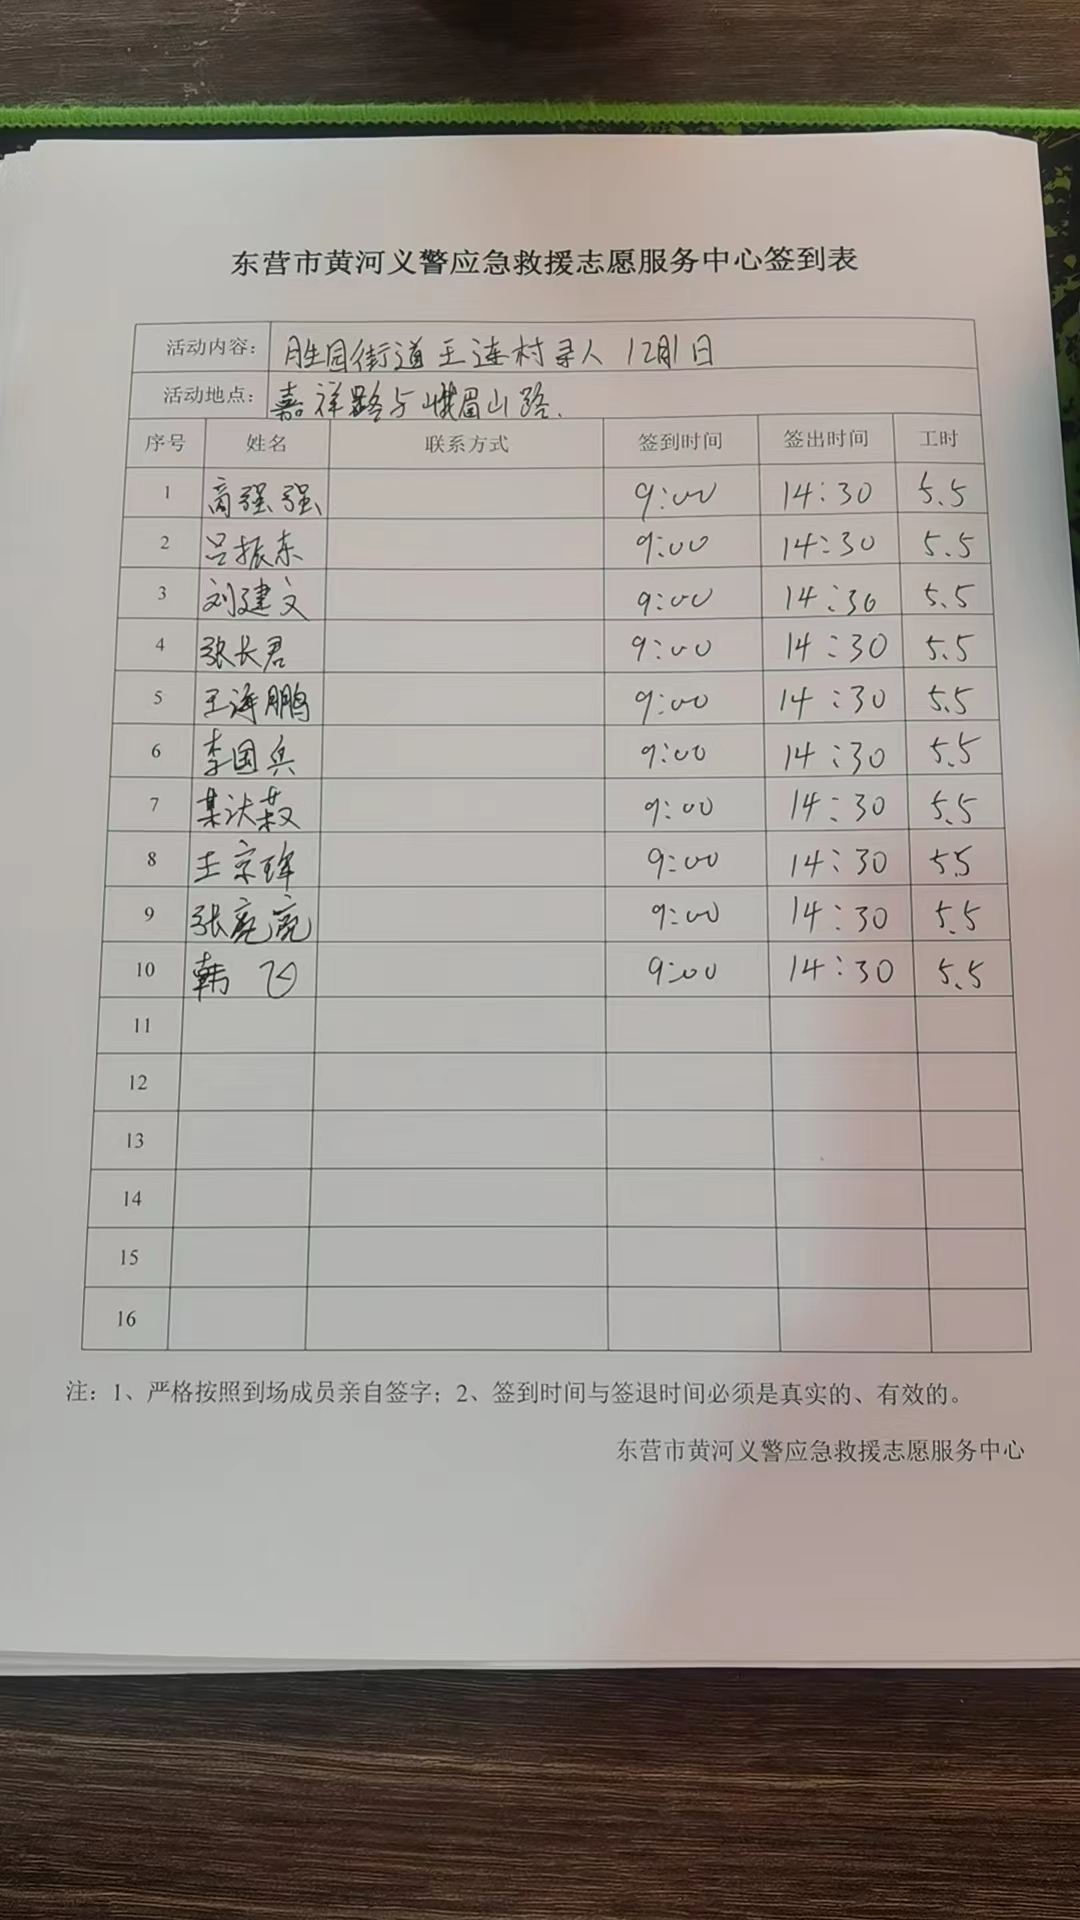 东营市黄河义警应急救援志愿服务中心签到表
活动内容： 胜园街道王连村寻人 12月1日
活动地点： 嘉祥路与峨眉山路.
序号 姓名 联系方式 签到时间 签出时间 工时
1 高强强 9:00 14:30 5.5
2 吕振东 9:00 14:30 5.5
3 刘建文 9:00 14:30 5.5
4 张长君 9:00 14:30 5.5
5 王海鹏 9:00 14:30 5.5
6 李国兵 9:00 14:30 5.5
7 9:00 14:30 5.5
8 王京 9:00 14:30 5.5
9 张亮亮 9:00 14:30 5.5
10 韩飞 9:00 14:30 5.5
11
12
13
14
15
16
注：1、严格按照到场成员亲自签字；2、签到时间与签退时间必须是真实的、有效的。
东营市黄河义警应急救援志愿服务中心